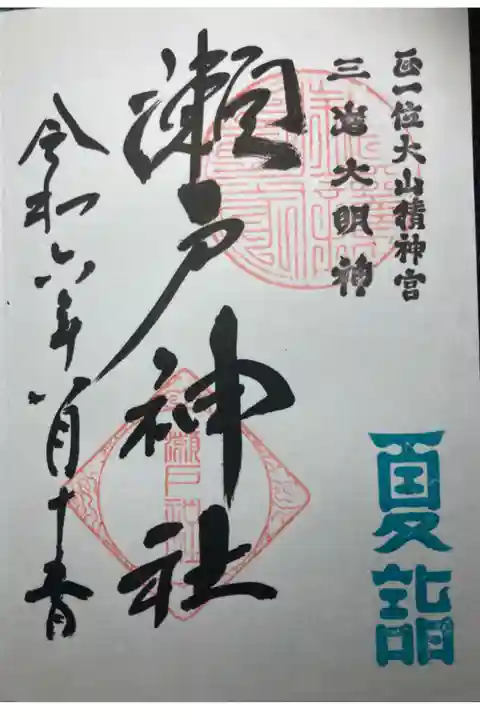 正一位大山積神宮
三島大明神
瀬戸神社
令和六年八月十
夏詣
瀬戸神社